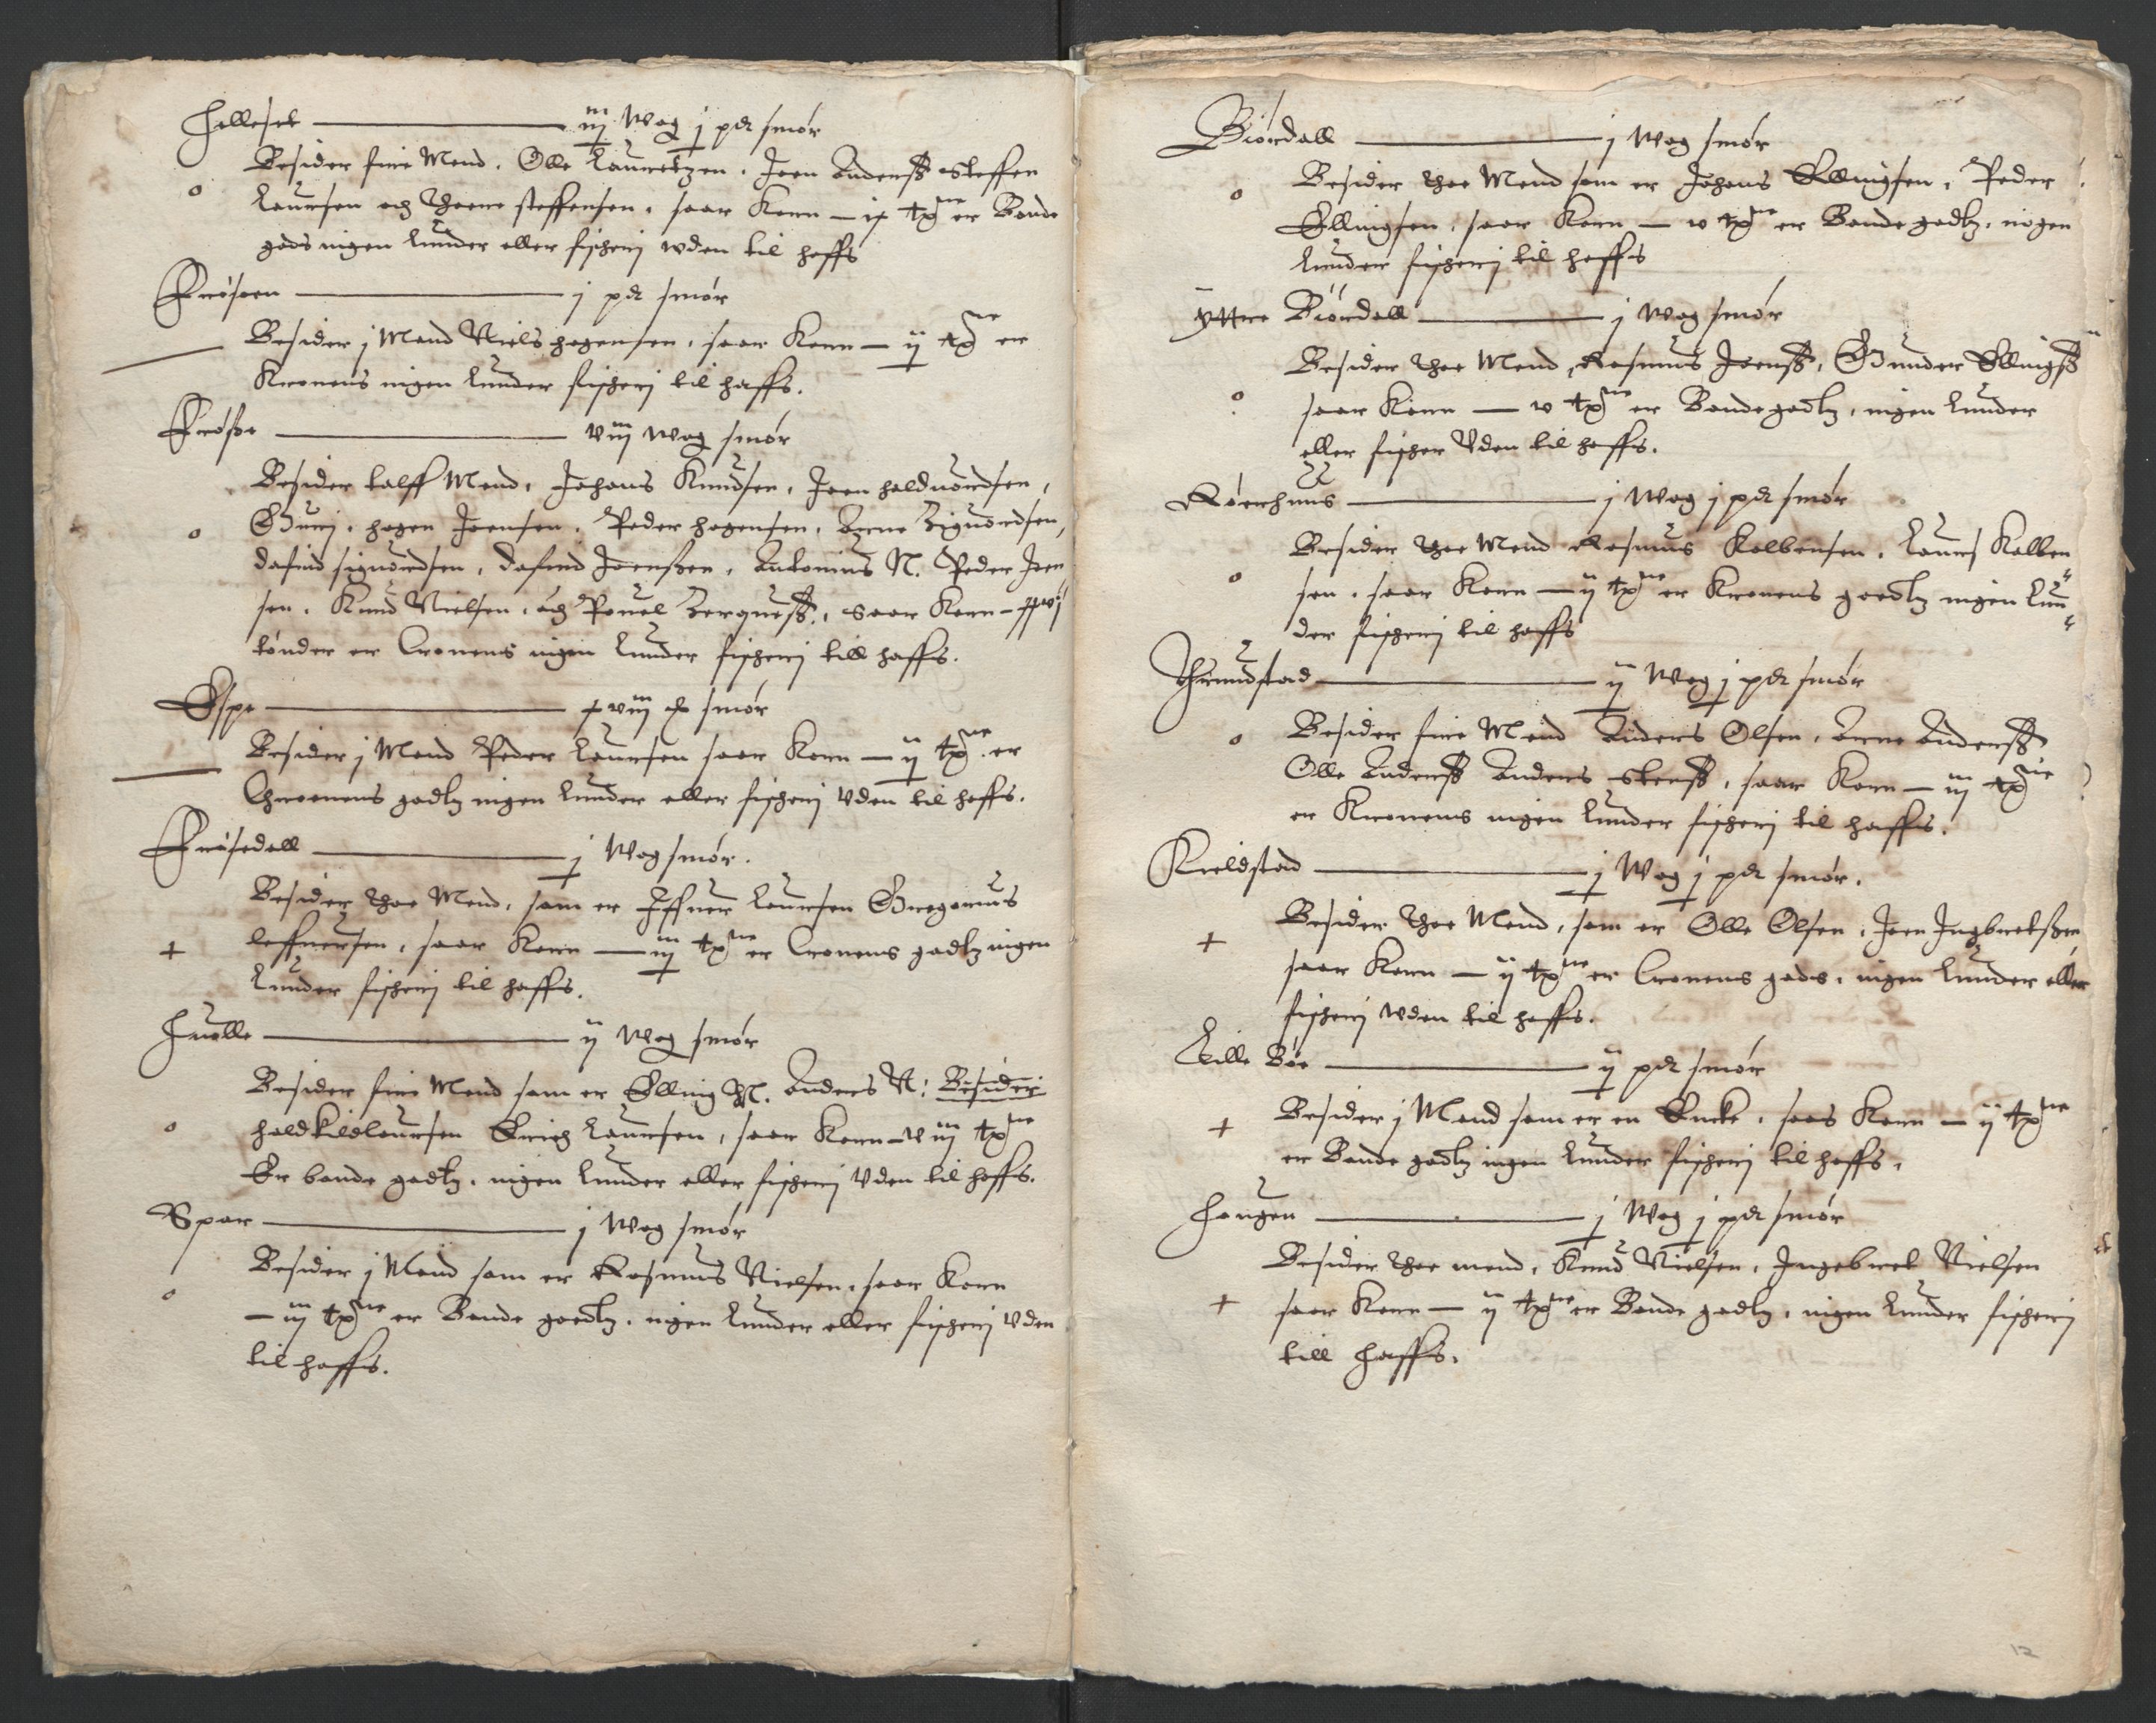 Hellesett — iij Wog j pd smør
Besider fire Mend. Olle Lauretzen. Joen Anderss Steffen
Laursen och Thorre steffensen. saar Korn — ix tøn er Bonde
gods ingen Lunder eller fischerj wden til haffs
Frøsoen — j pd smør
Besider j Mand Niels hogensen. saar Korn — ij tøn er
Kronens ingen Lunder fischerj til haffs.
Frøsøe — viij wog smør
Besider tolff Mend. Johans Knudsen. Joen holduordsen,
Gunj. hogen Joensen. Peder hogensen. Arne Siguordsen,
dafind siguordsen. dafind Joenssen. Antonius N. Peder Joen
sen. Knud Nielsen. och Pouel Bergness. saar Korn — xxvj
tønder er Cronens ingen Lunder fischerj till haffs.
Espe — xviij smør
Besider j Mand Peder Laursen saar Korn — ij tøn er
Chronens godtz ingen Lunder eller fischerj Vden til haffs.
Frøsedall — j Wog smør.
Besider thoe Mend. som er Iffuer Laursen Gregorius
Leffuersen. saar Korn — iij tøn er Cronens godtz ingen
Lunder fischerj til haffs.
Huolle — ij Wog smør
Besider fire Mend som er Elling N. Anders N: Besider
holdkild Laursen Erich Laursen, saar Korn — viij tøn
Er bonde godtz. ingen Lunder eller fischerj Vden til haffs.
Spor — j Wog smør
Besider j Mand som er Rasmus Nielsen. saar Korn
— iij tøn er Bonde goedtz. ingen Lunder eller fischerj Vden
til haffs.
Biordall — j Wog smør
Besider thoe Mend som er Johans Ellingsen. Peder
Ellingsen. saar Korn — v tøn er Bonde godtz. ingen
Lunder fischerj til haffs
Yttre Biordall — j Wog smør
Besider thoe Mend, Rasmus Joenss. Gunder Ellingss
saar Korn — v tøn er Bonde godtz. ingen Lunder
eller fischer Vden til haffs.
Røerhuus — j Wog j pd smør
Besider thoe Mend Rasmus Kolbensen. Laurs Kolben
sen. saar Korn — ij tøn er Kronens goedtz ingen Lun
der fischerj til haffs
Grundstad — ij Wog j pd smør
Besider fire Mend Anders Olsen. Arne Anderss
Olle Anderss Anders Stenss. saar Korn — iij tøn
er Kronens ingen Lunder fischerj til haffs.
Kieldstad — j Wog j pd smør.
Besider thoe Mend, som er Olle Olsen. Joen Ingbretssen
saar Korn — ij tøn er Cronens gods. ingen Lunder eller
fischerj wden til haffs.
Lille Bøe — ij pd smør
Besider j Mand som er en Encke. saas Korn — ij tøn
er Bonde godtz ingen Lunder fischerj til haffs.
Hougen — j Wog j pd smør
Besider thoe mend. Knud Nielsen. Ingebret Nielsen
saar Korn — ij tøn er Bonde godtz. ingen Lunder fischerj
till haffs.
12